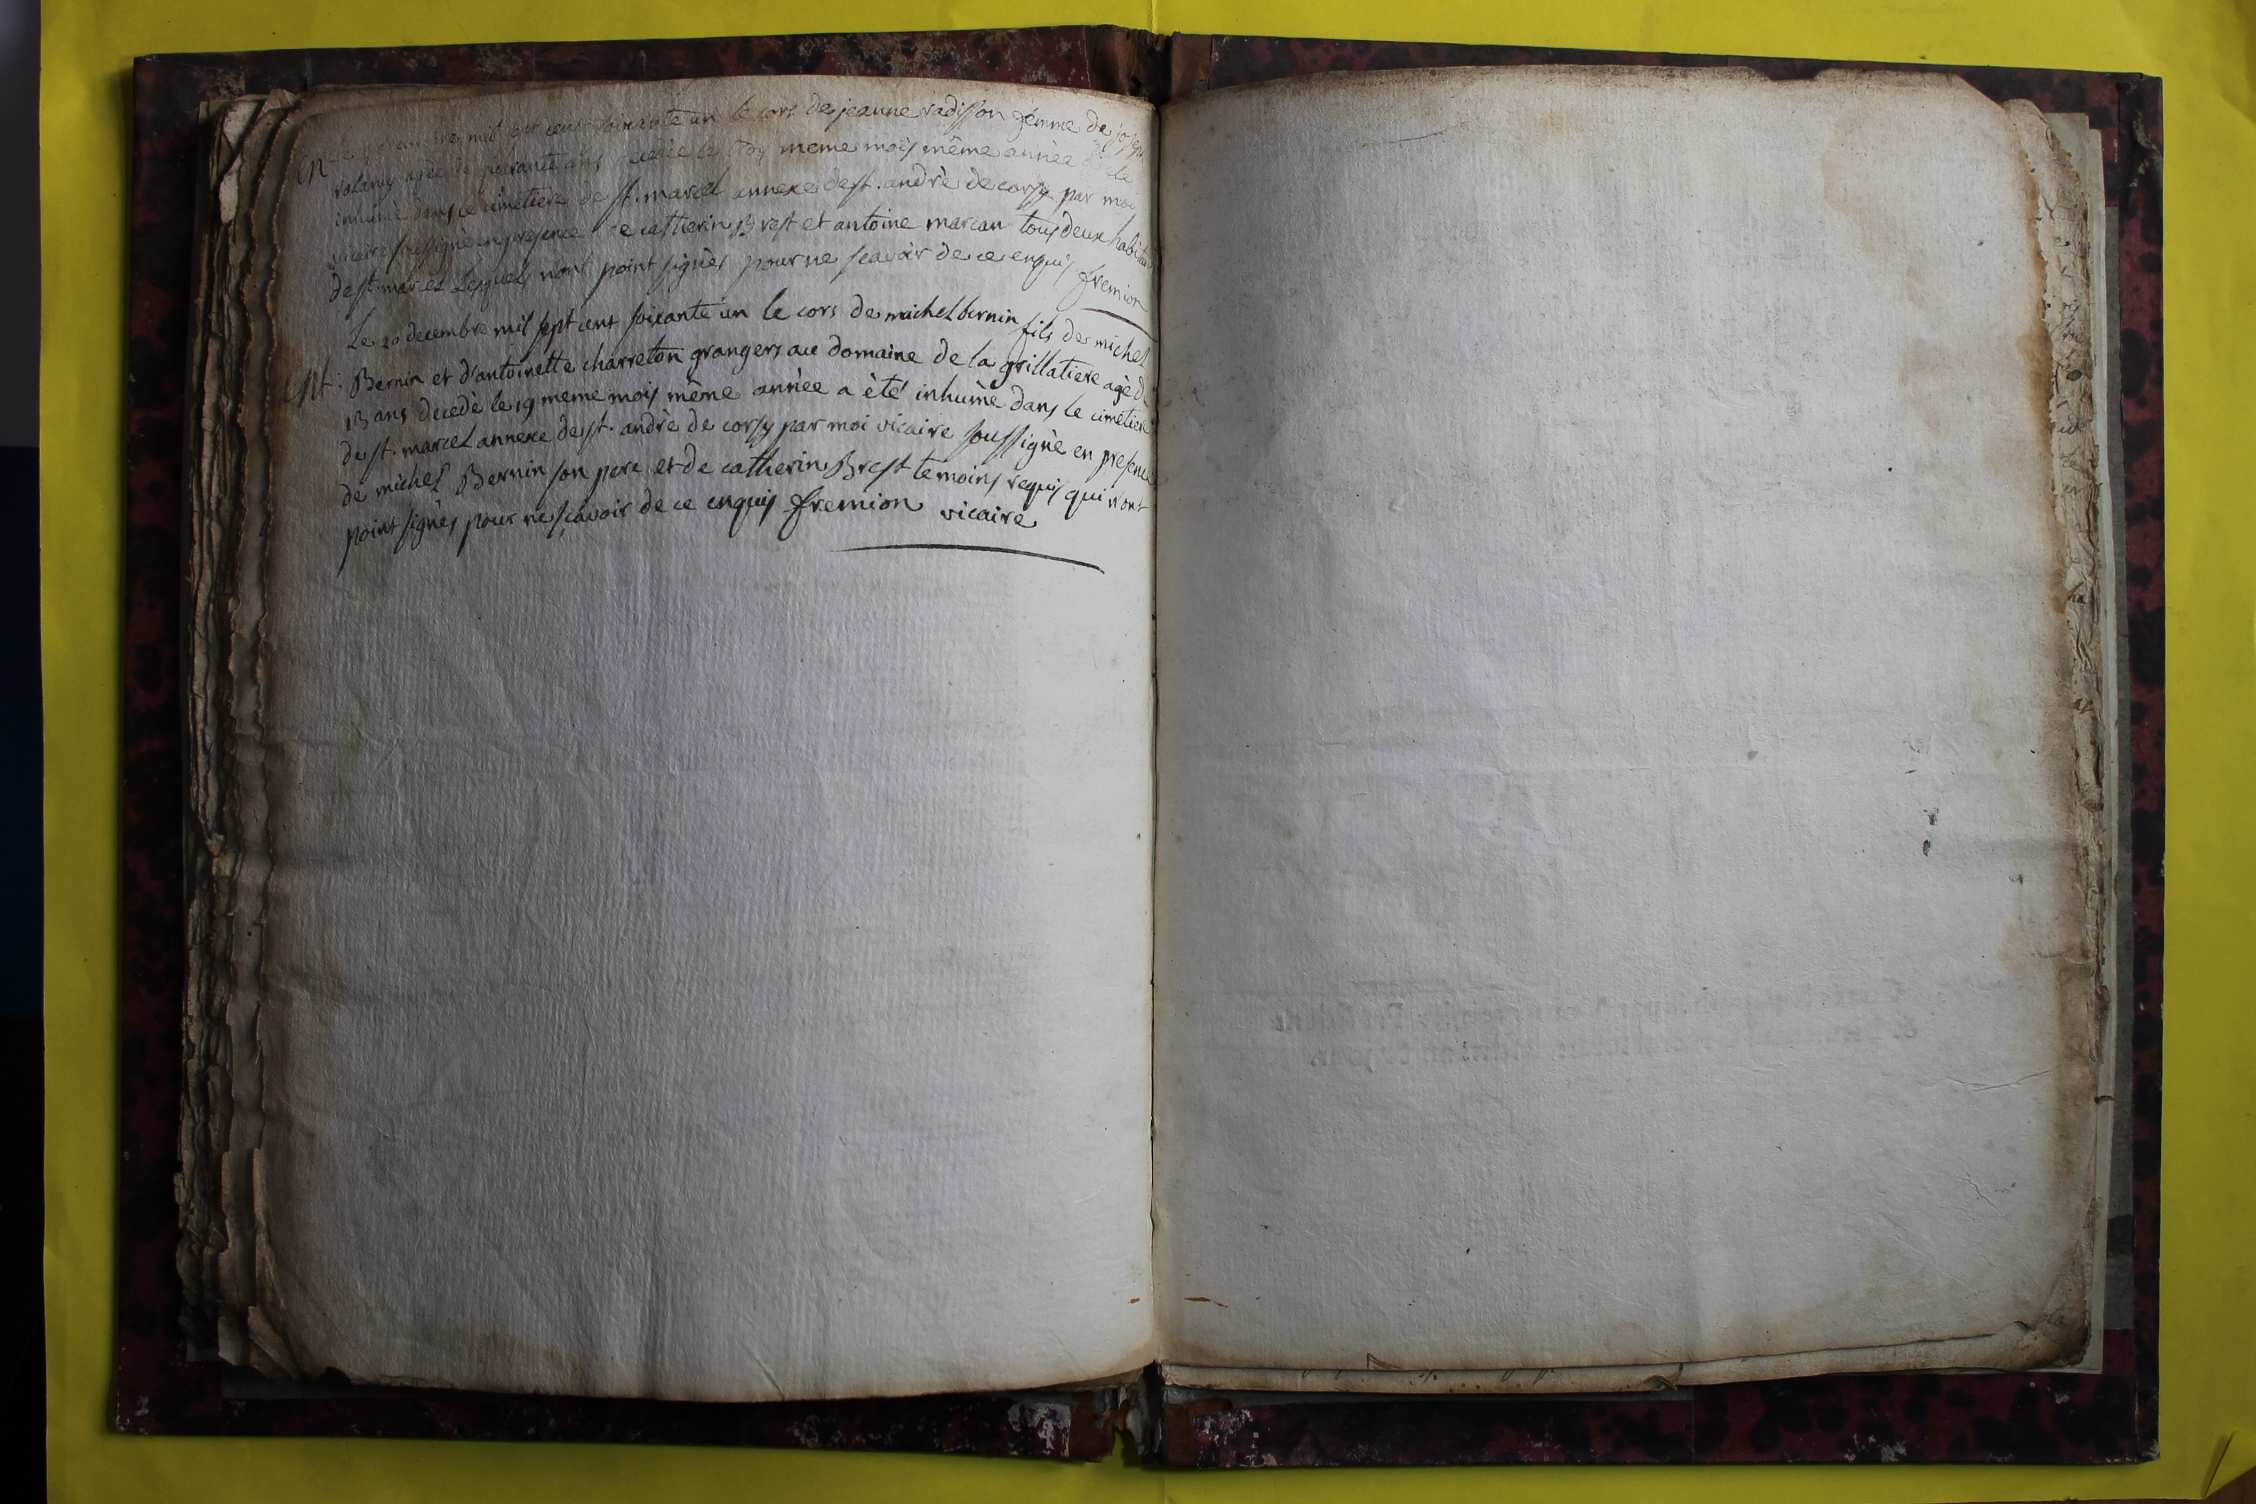 mil sept cent soixante un le cors de jeanne radisson femme de joseph
agée de soixante ans même mois même année a été
inhumé dans le cimetiere de st. marcel annexe de st. andrè de corsy par moi
vicaire soussignè en presence de catherin Brest et antoine marcan tous deux habitans
de st. marcel lesquels n'ont point signès pour ne scavoir de ce enquis fremion
Le 20 decembre mil sept cent soixante un le cors de michel bernin fils de michel
Bernin et d'antoinette charreton grangers au domaine de la grillatiere agè de
13 ans decedè le 19 meme mois même annèe a èté inhumè dans le cimetiere
de st. marcel annexe de st. andrè de corsy par moi vicaire soussignè en presence
de michel Bernin son pere et de catherin Brest temoins requis qui n'ont
point signès pour ne scavoir de ce enquis fremion vicaire